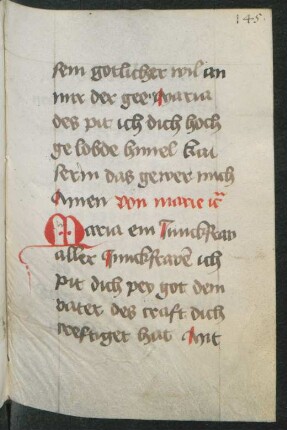 145
sein gotlicher wil an
mir der gee maria
des pit ich dich hoch
ge lobde himel kai
serin das gewer mich
Amen von marie
Maria ein Junckfraw
aller Junckfrawē ich
pit dich pey got dem
vater des craft dich
creftiget hat Mit